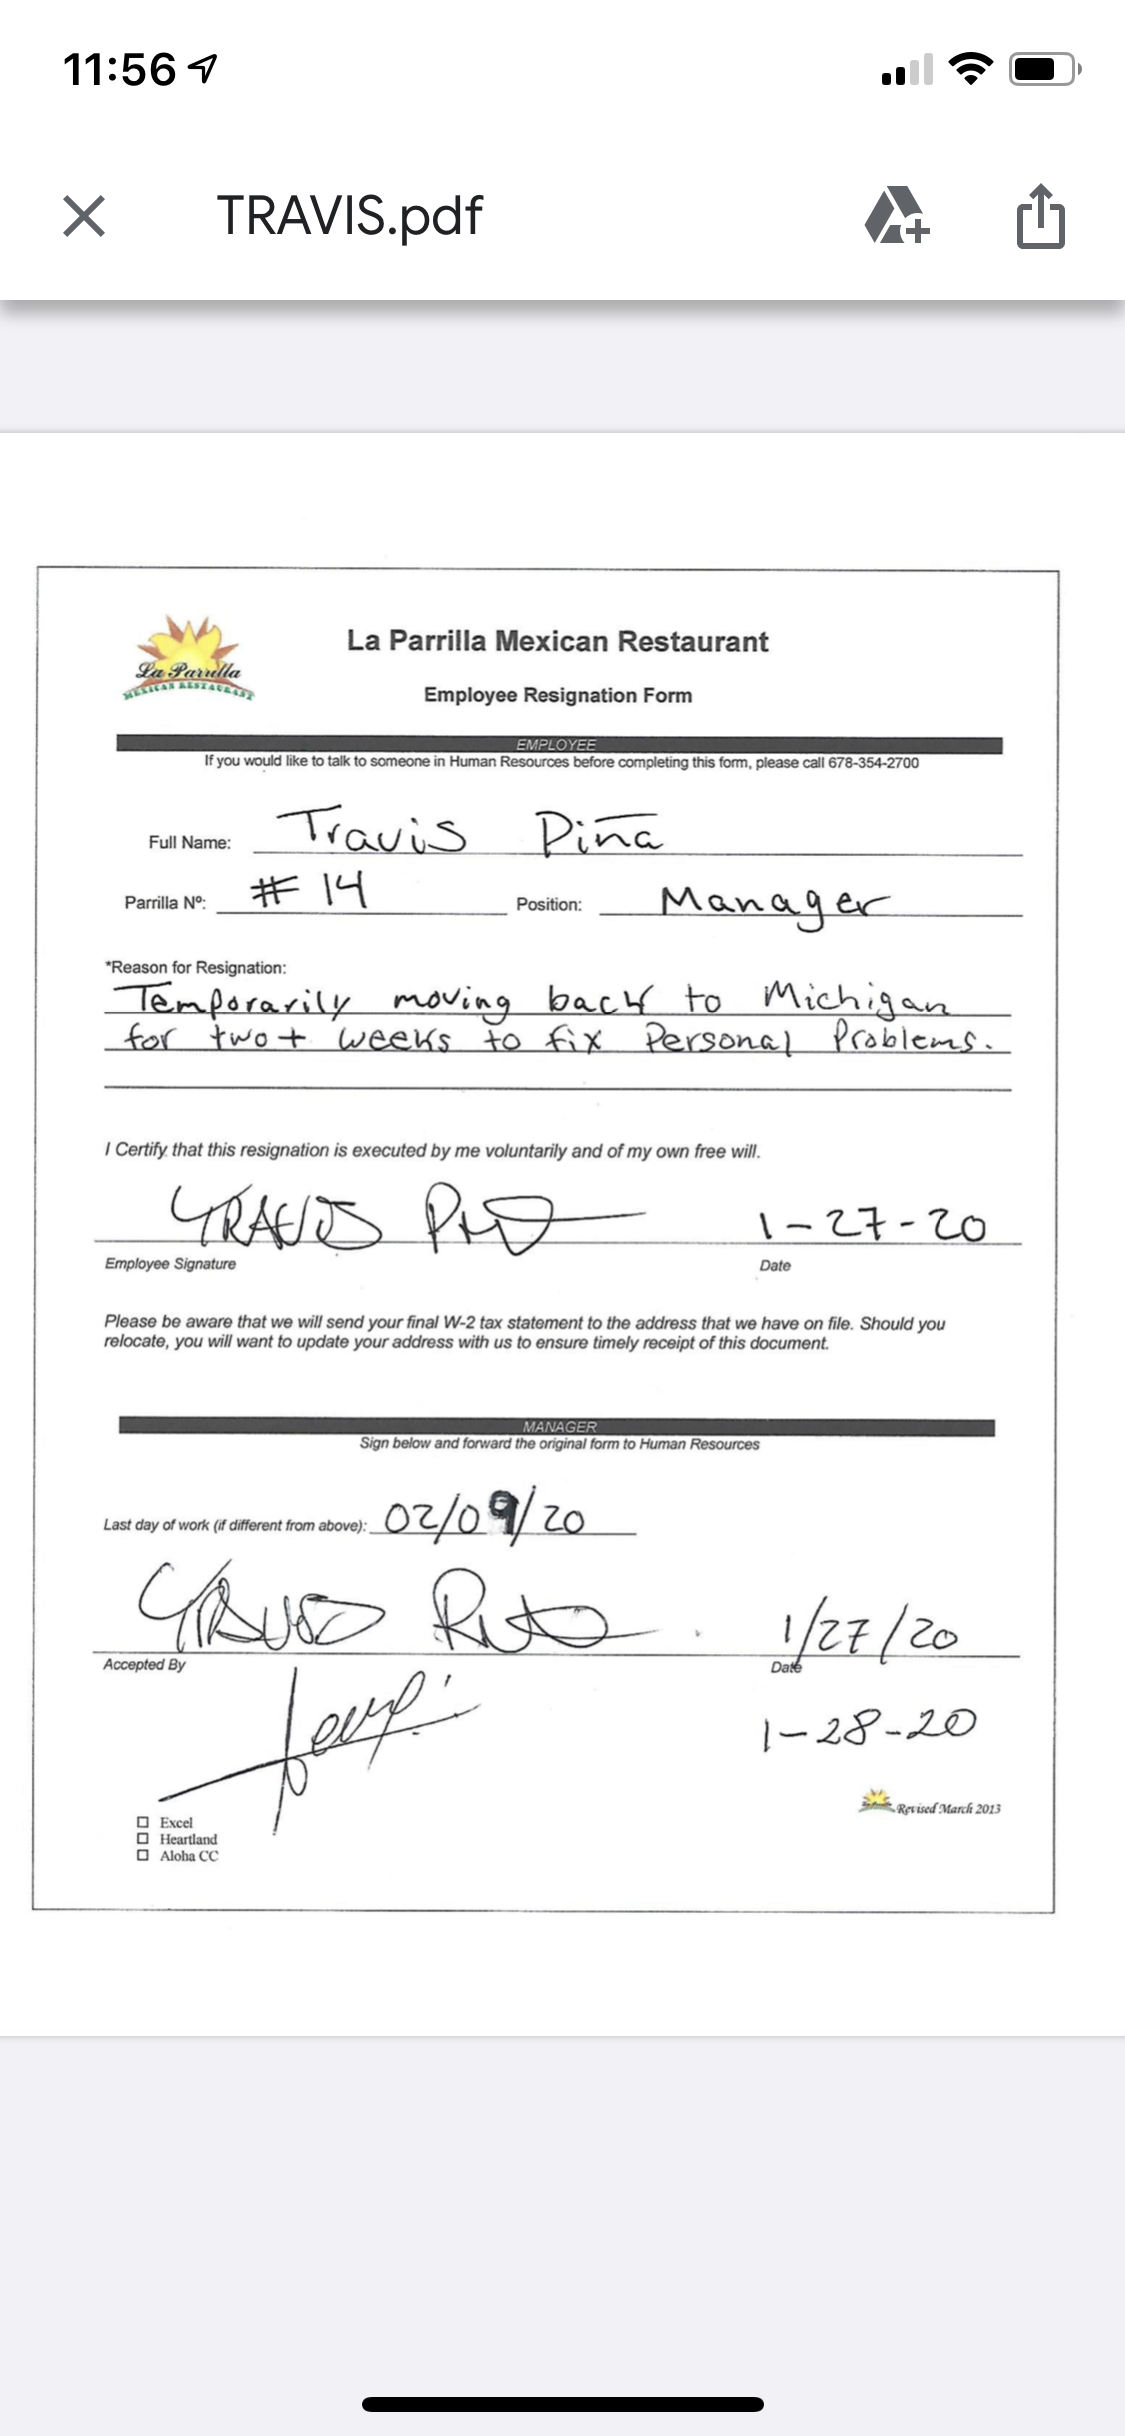 11:56
TRAVIS.pdf
La Parrilla
MEXICAN RESTAURANT
La Parrilla Mexican Restaurant
Employee Resignation Form
EMPLOYEE
If you would like to talk to someone in Human Resources before completing this form, please call 678-354-2700
Full Name: Travis Piña
Parrilla Nº: # 14 Position: Manager
*Reason for Resignation:
Temporarily moving back to Michigan
for two+ weeks to fix Personal Problems.
I Certify that this resignation is executed by me voluntarily and of my own free will.
TRAVIS 1-27-20
Employee Signature Date
Please be aware that we will send your final W-2 tax statement to the address that we have on file. Should you
relocate, you will want to update your address with us to ensure timely receipt of this document.
MANAGER
Sign below and forward the original form to Human Resources
Last day of work (if different from above): 02/09/20
1/27/20
Accepted By Date
1-28-20
Revised March 2013
Excel
Heartland
Aloha CC